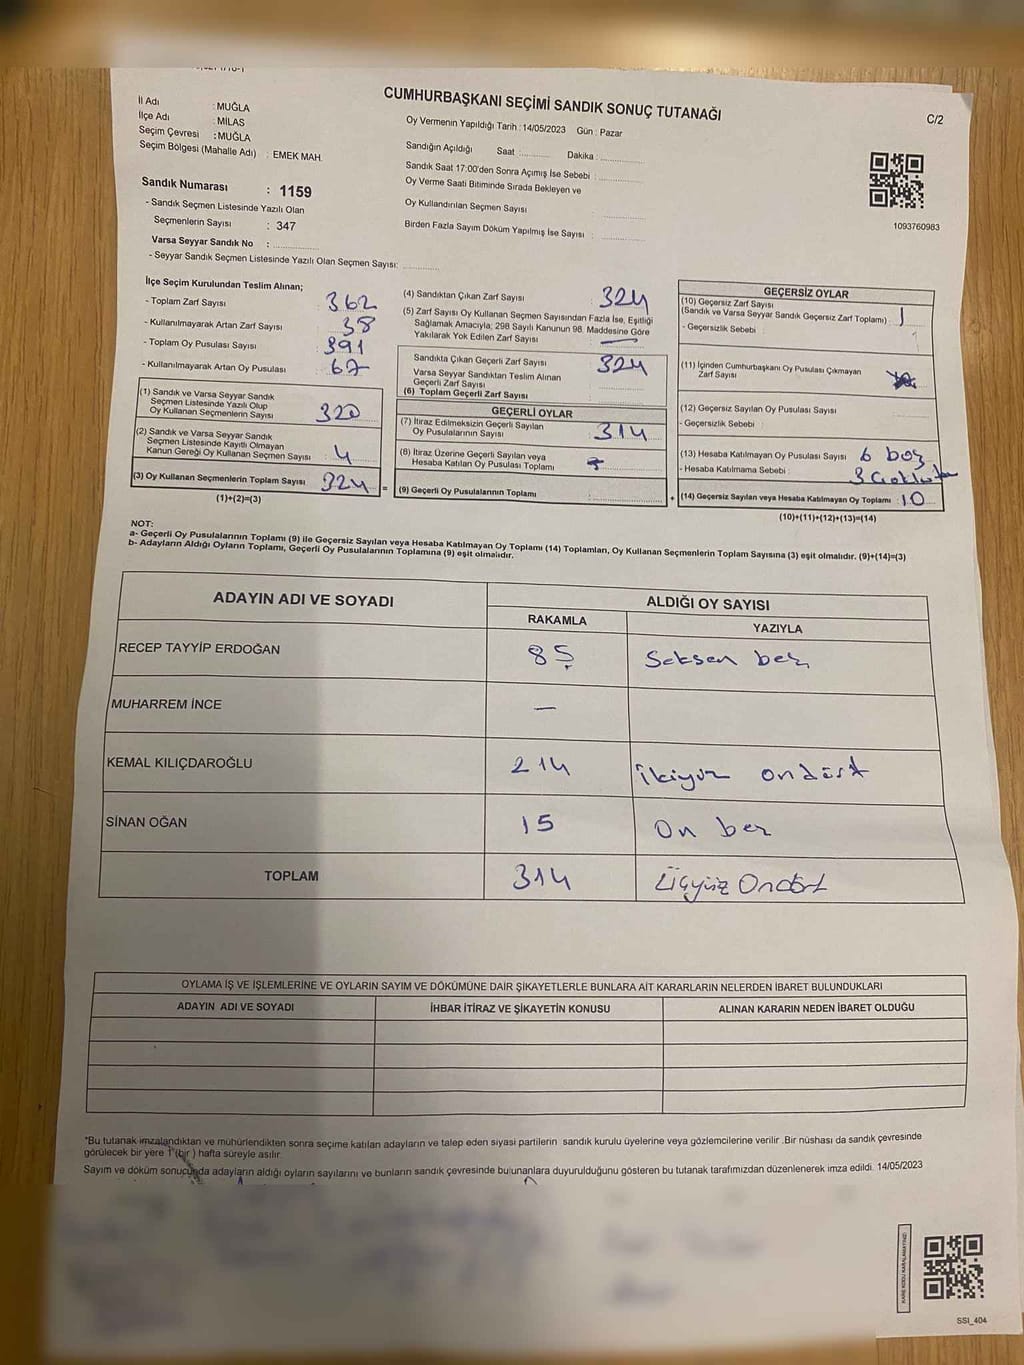 CUMHURBAŞKANI SEÇİMİ SANDIK SONUÇ TUTANAĞI
C/2
İl Adı : MUĞLA
İlçe Adı : MİLAS
Seçim Çevresi : MUĞLA
Seçim Bölgesi (Mahalle Adı) : EMEK MAH.
Sandık Numarası : 1159
- Sandık Seçmen Listesinde Yazılı Olan
Seçmenlerin Sayısı : 347
Varsa Seyyar Sandık No :
- Seyyar Sandık Seçmen Listesinde Yazılı Olan Seçmen Sayısı:
Oy Vermenin Yapıldığı Tarih : 14/05/2023 Gün : Pazar
Sandığın Açıldığı Saat : Dakika :
Sandık Saat 17:00'den Sonra Açımış İse Sebebi :
Oy Verme Saati Bitiminde Sırada Bekleyen ve
Oy Kullandırılan Seçmen Sayısı
Birden Fazla Sayım Döküm Yapılmış İse Sayısı :
1093760983
İlçe Seçim Kurulundan Teslim Alınan;
- Toplam Zarf Sayısı : 362
- Kullanılmayarak Artan Zarf Sayısı : 38
- Toplam Oy Pusulası Sayısı : 391
- Kullanılmayarak Artan Oy Pusulası : 67
(1) Sandık ve Varsa Seyyar Sandık
Seçmen Listesinde Yazılı Olup
Oy Kullanan Seçmenlerin Sayısı : 320
(2) Sandık ve Varsa Seyyar Sandık
Seçmen Listesinde Kayıtlı Olmayan
Kanun Gereği Oy Kullanan Seçmen Sayısı : 4
(3) Oy Kullanan Seçmenlerin Toplam Sayısı 324 =
(1)+(2)=(3)
(4) Sandıktan Çıkan Zarf Sayısı : 324
(5) Zarf Sayısı Oy Kullanan Seçmen Sayısından Fazla İse, Eşitliği
Sağlamak Amacıyla; 298 Sayılı Kanunun 98. Maddesine Göre
Yakılarak Yok Edilen Zarf Sayısı : —
Sandıkta Çıkan Geçerli Zarf Sayısı : 324
Varsa Seyyar Sandıktan Teslim Alınan
Geçerli Zarf Sayısı
(6) Toplam Geçerli Zarf Sayısı
GEÇERLİ OYLAR
(7) İtiraz Edilmeksizin Geçerli Sayılan
Oy Pusulalarının Sayısı : 314
(8) İtiraz Üzerine Geçerli Sayılan veya
Hesaba Katılan Oy Pusulası Toplamı
(9) Geçerli Oy Pusulalarının Toplamı : +
GEÇERSİZ OYLAR
(10) Geçersiz Zarf Sayısı
(Sandık ve Varsa Seyyar Sandık Geçersiz Zarf Toplamı) : 1
- Geçersizlik Sebebi :
(11) İçinden Cumhurbaşkanı Oy Pusulası Çıkmayan
Zarf Sayısı
(12) Geçersiz Sayılan Oy Pusulası Sayısı
- Geçersizlik Sebebi :
(13) Hesaba Katılmayan Oy Pusulası Sayısı : 6 boş
- Hesaba Katılmama Sebebi : 3
(14) Geçersiz Sayılan veya Hesaba Katılmayan Oy Toplamı : 10
(10)+(11)+(12)+(13)=(14)
NOT:
a- Geçerli Oy Pusulalarının Toplamı (9) ile Geçersiz Sayılan veya Hesaba Katılmayan Oy Toplamı (14) Toplamları, Oy Kullanan Seçmenlerin Toplam Sayısına (3) eşit olmalıdır. (9)+(14)=(3)
b- Adayların Aldığı Oyların Toplamı, Geçerli Oy Pusulalarının Toplamına (9) eşit olmalıdır.
ADAYIN ADI VE SOYADI ALDIĞI OY SAYISI
RAKAMLA YAZIYLA
RECEP TAYYİP ERDOĞAN 85 Seksen beş
MUHARREM İNCE —
KEMAL KILIÇDAROĞLU 214 İkiyüz ondört
SİNAN OĞAN 15 On beş
TOPLAM 314 Üçyüz Ondört
OYLAMA İŞ VE İŞLEMLERİNE VE OYLARIN SAYIM VE DÖKÜMÜNE DAİR ŞİKAYETLERLE BUNLARA AİT KARARLARIN NELERDEN İBARET BULUNDUKLARI
ADAYIN ADI VE SOYADI İHBAR İTİRAZ VE ŞİKAYETİN KONUSU ALINAN KARARIN NEDEN İBARET OLDUĞU
*Bu tutanak imzalandıktan ve mühürlendikten sonra seçime katılan adayların ve talep eden siyasi partilerin sandık kurulu üyelerine veya gözlemcilerine verilir. Bir nüshası da sandık çevresinde
görülecek bir yere 1 (bir) hafta süreyle asılır.
Sayım ve döküm sonucunda adayların aldığı oyların sayılarını ve bunların sandık çevresinde bulunanlara duyurulduğunu gösteren bu tutanak tarafımızdan düzenlenerek imza edildi. 14/05/2023
KARE KODU KARALAMAYINIZ!
SSI_404